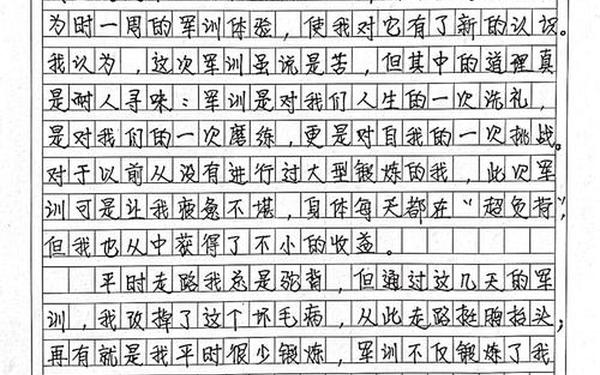 为时一周的军训体验，使我对它有了新的认识。
我认为，这次军训虽说是苦，但其中的道理真
是耐人寻味：军训是对我们人生的一次洗礼，
是对我们的一次磨练，更是对自我的一次挑战。
对于以前从没有进行过大型锻炼的我，此次军
训可是让我疲惫不堪，身体每天都在“超负荷”，
但我也从中获得了不小的收益。
平时走路我总是驼背，但通过这几天的军
训，我改掉了这个坏毛病，从此走路挺胸抬头；
再有就是我平时很少锻炼，军训不仅锻炼了我